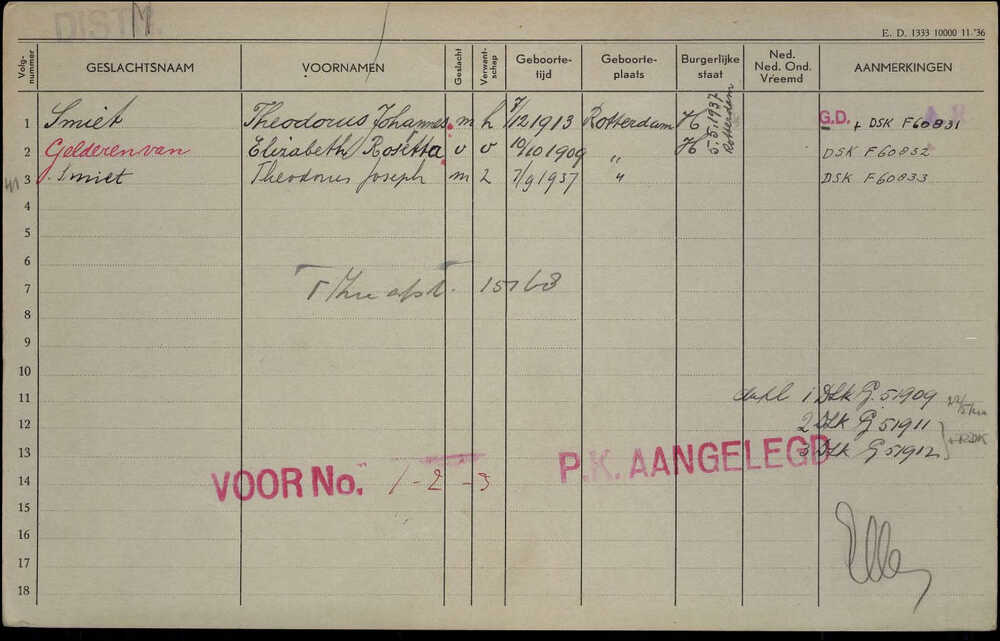 DIST M.
E. D. 1333 10000 11.'36
Volg-nummer GESLACHTSNAAM VOORNAMEN Geslacht Verwant-schap Geboorte-tijd Geboorte-plaats Burgerlijke staat Ned. Ned. Ond. Vreemd AANMERKINGEN
1 Smiet Theodorus Johannes m h 7/12 1913 Rotterdam H 5.5.1937 Rotterdam G.D. + DSK F60831
2 Gelderen van Elizabeth Rosetta v v 10/10 1909 " H DSK F60832
3 Smiet Theodorus Joseph m z 7/9 1937 " DSK F60833
4
5
6
7
8
9
10
11 1 DSK G 51909
12 2 DSK G 51911
13 3 DSK G 51912
14 VOOR No. 1-2-3 P.K. AANGELEGD
15
16
17
18